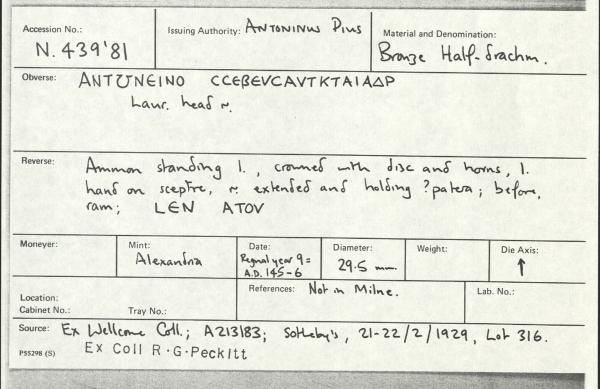 Accession No.: N. 439'81
Issuing Authority: ANTONINUS PIUS
Material and Denomination: Bronze Half-drachm.
Obverse: ANTѠNEINO CCEBEVCAVTKTAIAΔP
Laur. head r.
Reverse: Ammon standing l., crowned with disc and horns, l.
hand on sceptre, r. extended and holding ?patera; before,
ram; LEN ATOV
Moneyer:
Mint: Alexandria
Date: Regnal year 9 =
A.D. 145-6
Diameter: 29.5 mm.
Weight:
Die Axis: ↑
Location:
Cabinet No.: Tray No.:
References: Not in Milne.
Lab. No.:
Source: Ex Wellcome Coll.; A213183; Sotheby's, 21-22/2/1929, Lot 316.
PS5298 (S) Ex Coll R.G.Peckitt